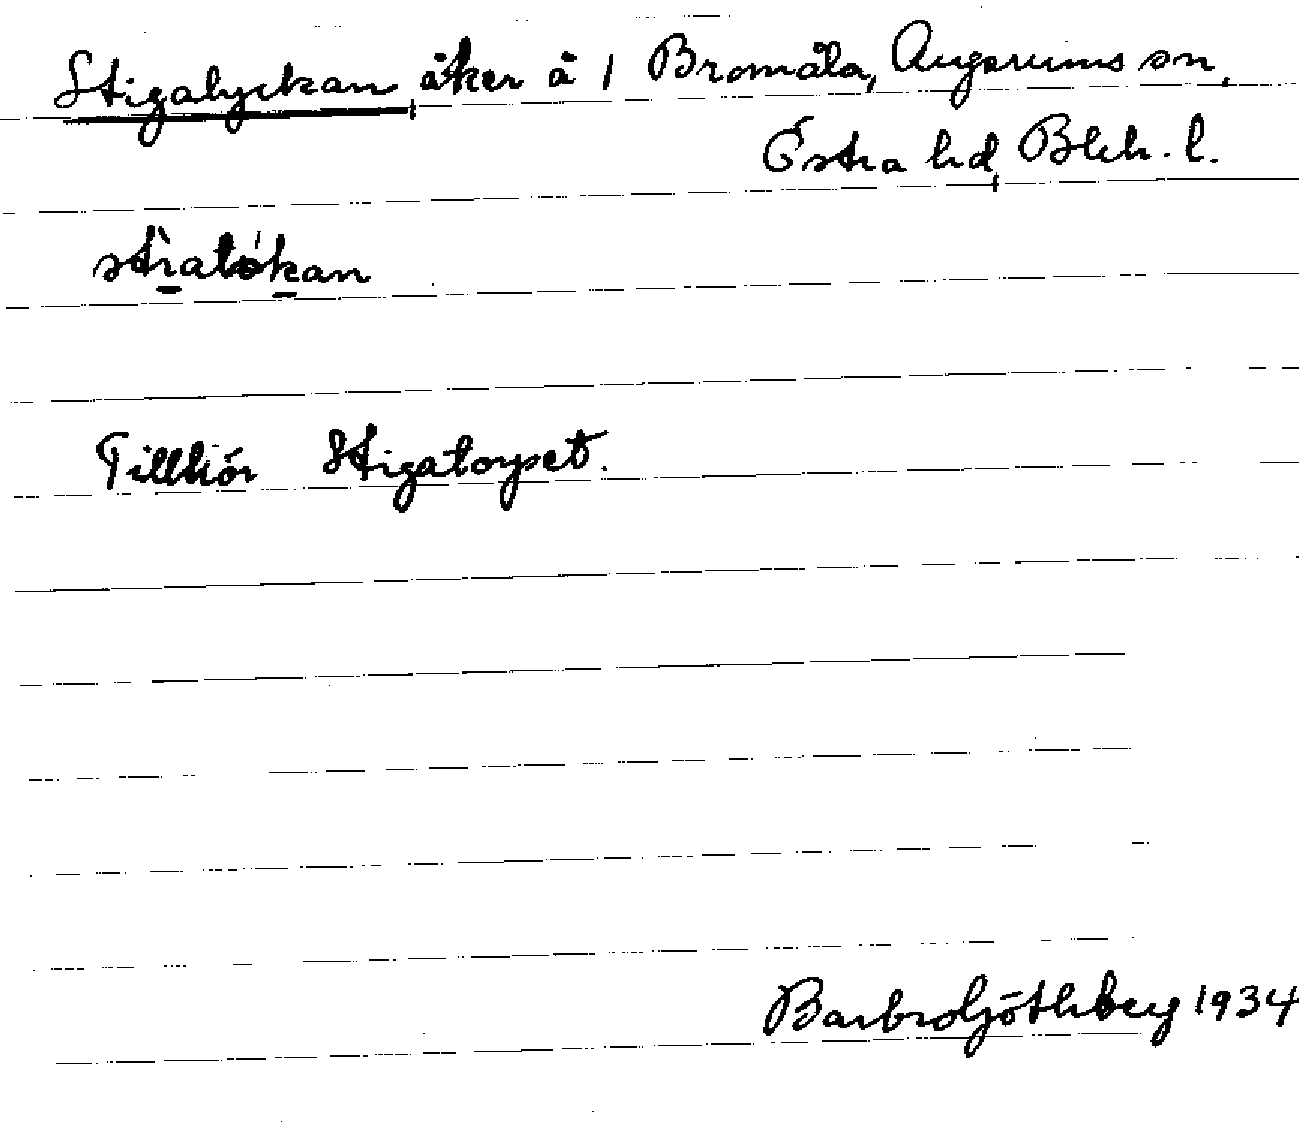 Stigalyckan, åker å 1 Bromåla, Augerums sn,
Östra hd, Blek. l.
Tillhör Stigatorpet.
Barbro Göthberg 1934